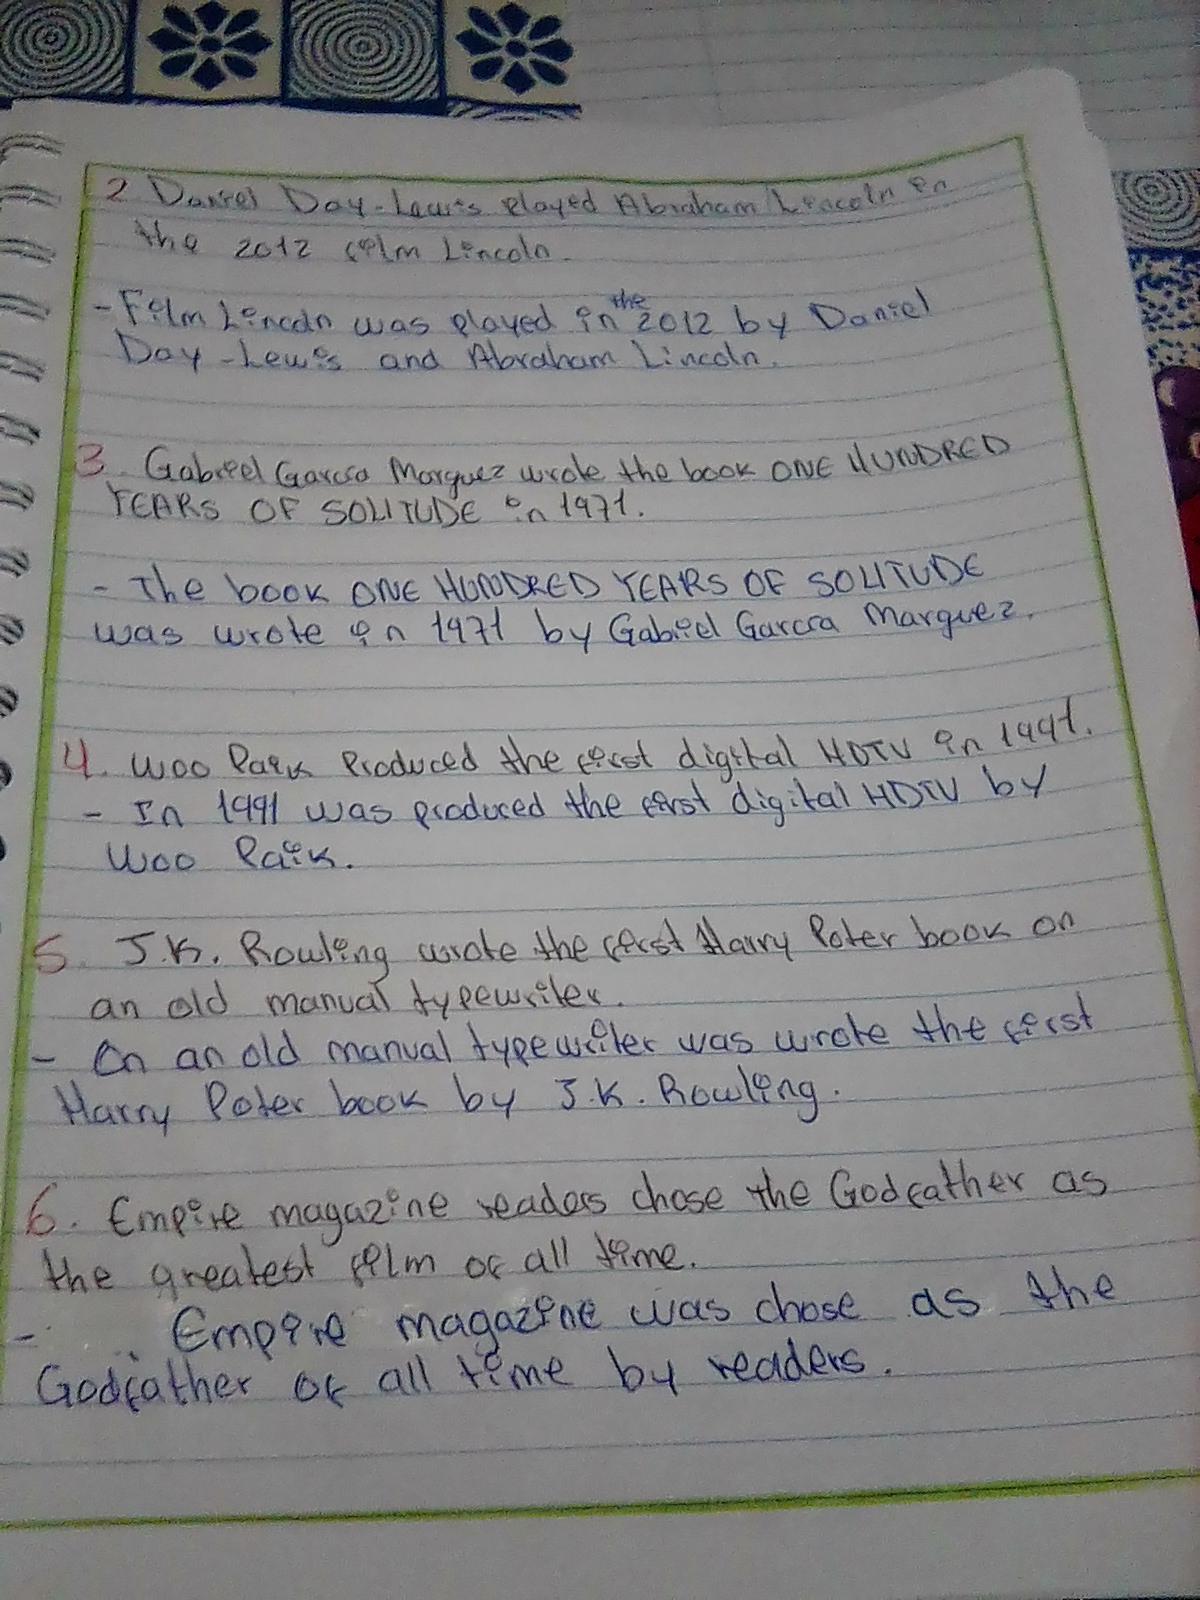 2 Daniel Day-Lewis played Abraham Lincoln in
the 2012 film Lincoln.
- Film Lincoln was played in the 2012 by Daniel
Day-Lewis and Abraham Lincoln.
3. Gabriel García Marquez wrote the book ONE HUNDRED
YEARS OF SOLITUDE in 1971.
- The book ONE HUNDRED YEARS OF SOLITUDE
was wrote in 1971 by Gabriel García Marquez.
4. Woo Paik Produced the first digital HDTV in 1991.
- In 1991 was produced the first digital HDTV by
Woo Paik.
5. J.K. Rowling wrote the first Harry Poter book on
an old manual typewriter.
- On an old manual typewriter was wrote the first
Harry Poter book by J.K. Rowling.
6. Empire magazine readers chose the Godfather as
the greatest film of all time.
- Empire magazine was chose as the
Godfather of all time by readers.